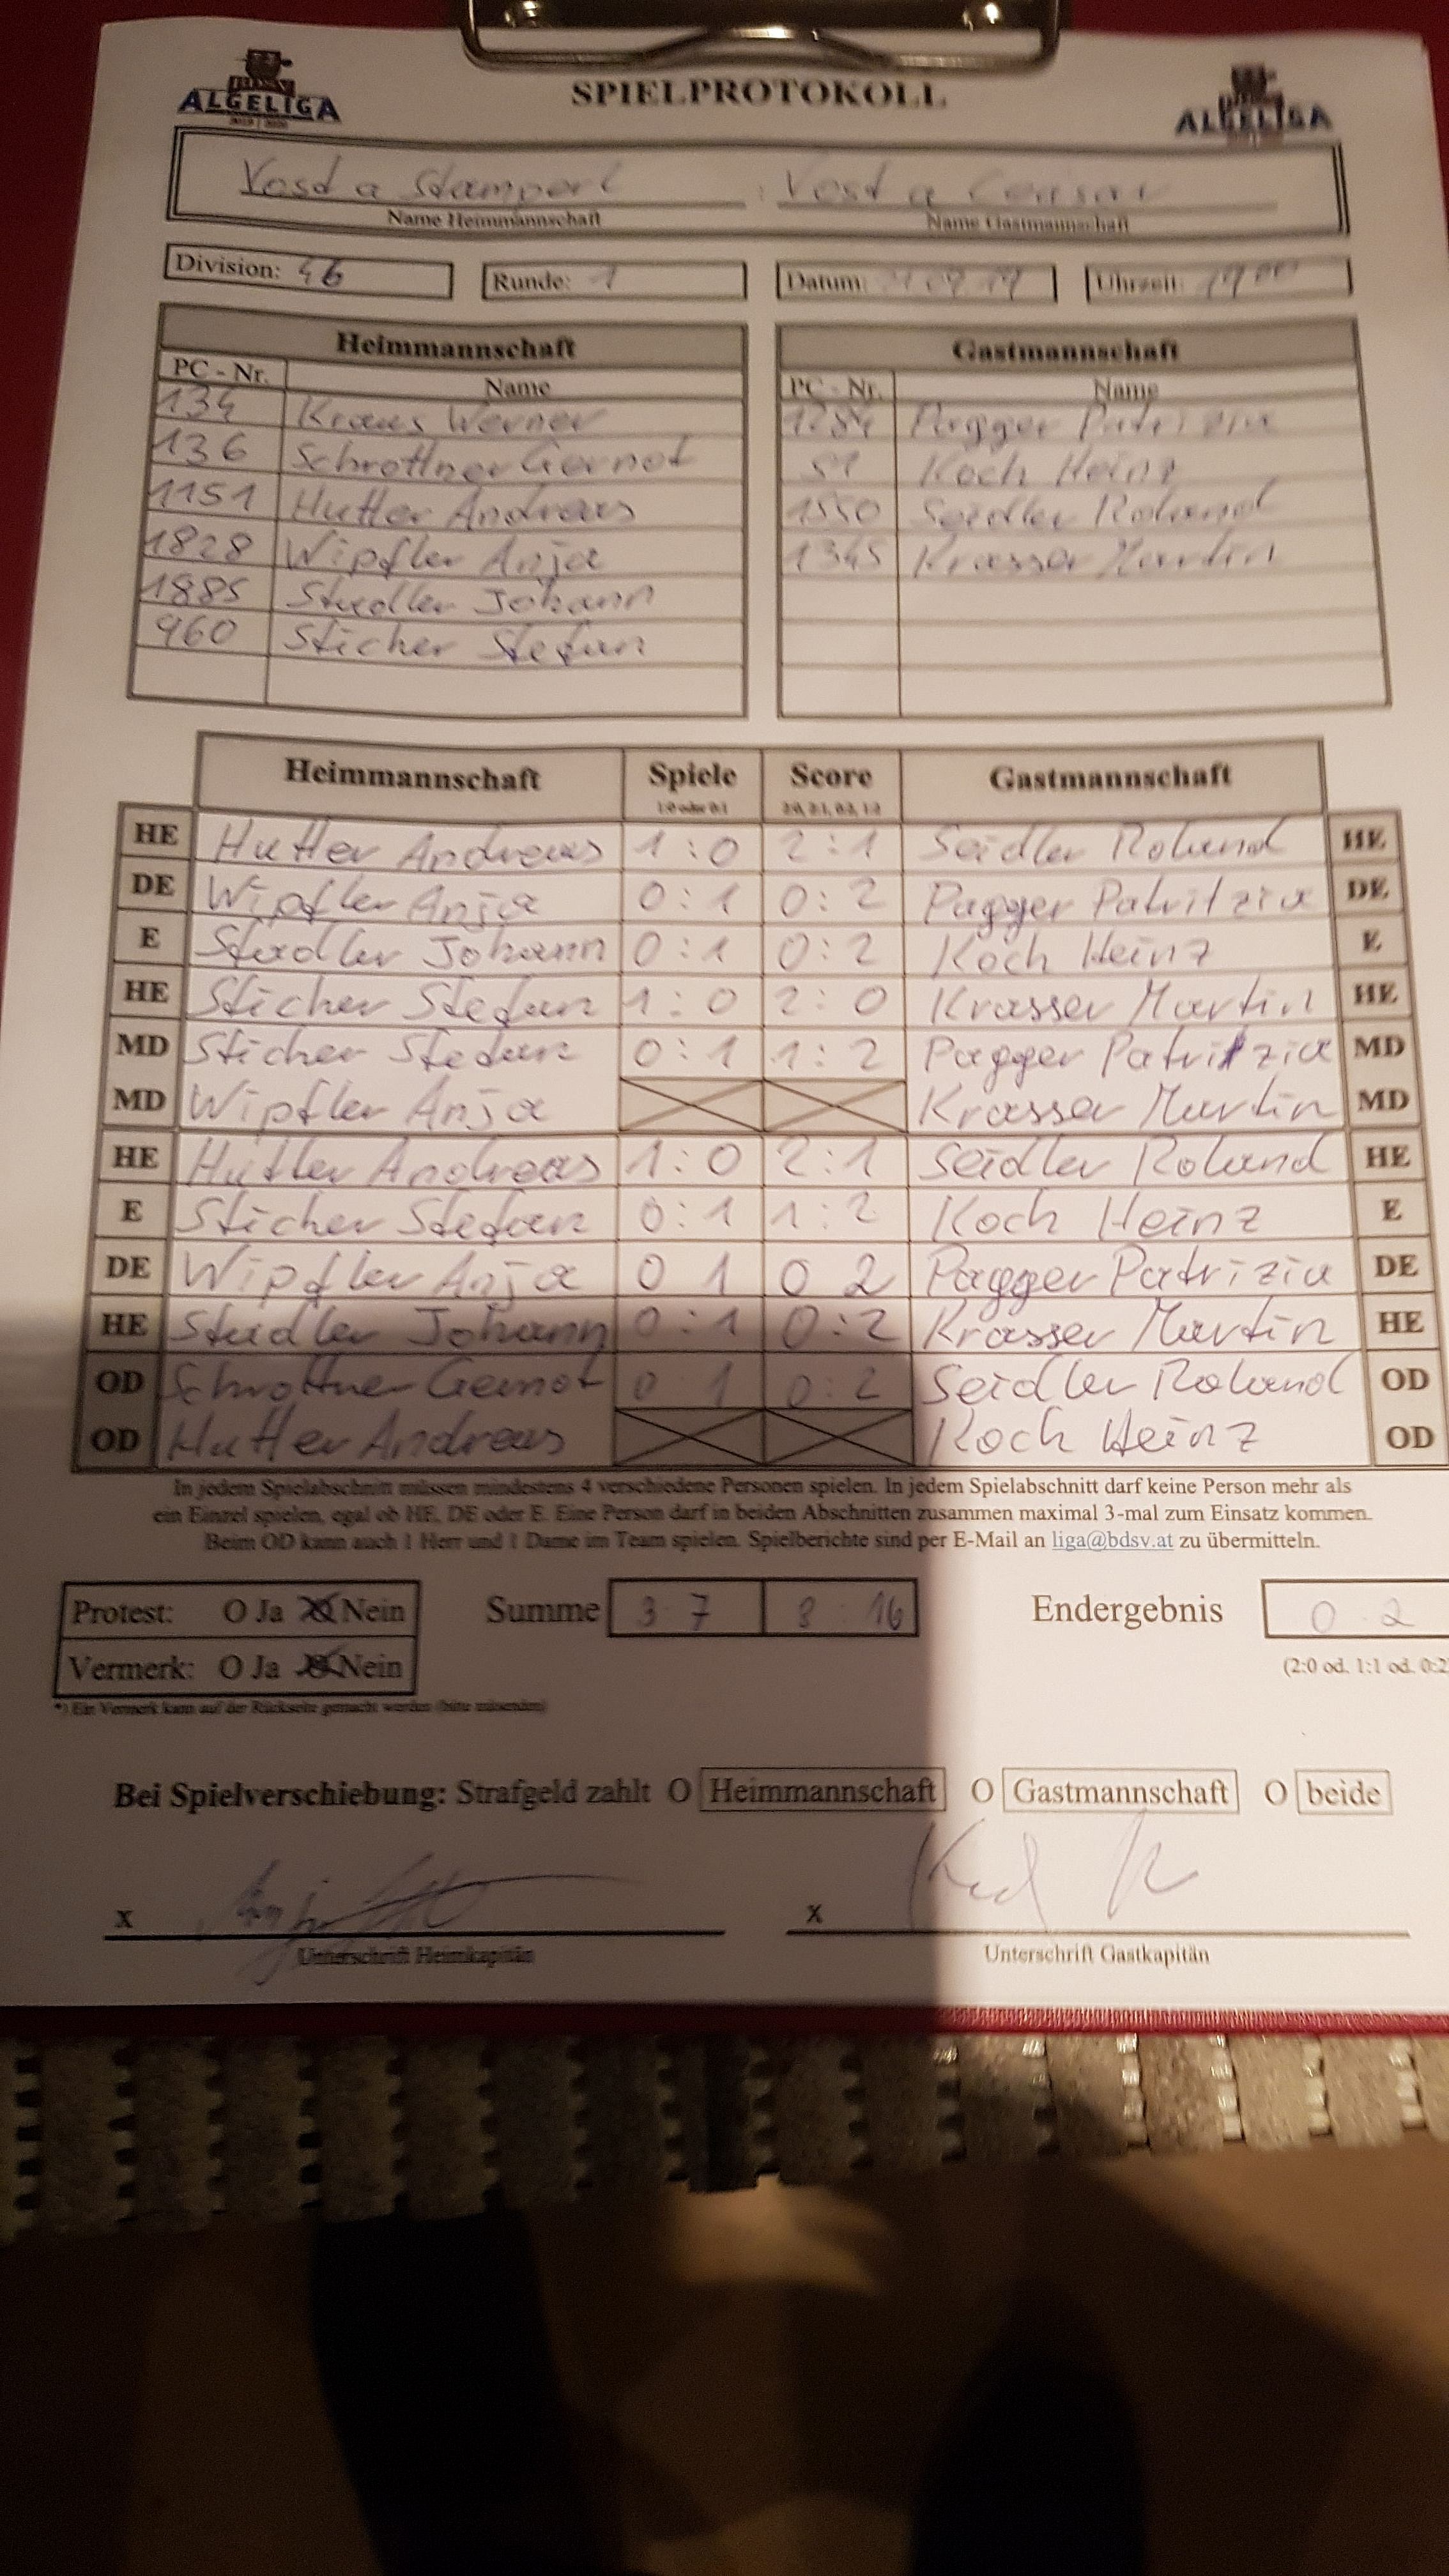 BDSV
ALGELIGA
2019 | 2020
SPIELPROTOKOLL
ALGELIGA
Vost a Stamperl : Vost a
Name Heimmannschaft Name Gastmannschaft
Division: 4b Runde: 1 Datum: 09 19 Uhrzeit: 19 00
Heimmannschaft Gastmannschaft
PC - Nr. Name PC - Nr. Name
134 Kraus Werner 1284 Pagger Patrizia
136 Schrottner Gernot 51 Koch Heinz
1151 Hutter Andreas 1550 Seidler Roland
1828 Wipfler Anja 1345 Krasser Martin
1885 Stadler Johann
960 Sticher Stefan
Heimmannschaft Spiele Score Gastmannschaft
1:0 oder 0:1 2:0, 2:1, 0:2, 1:2
HE Hutter Andreas 1:0 2:1 Seidler Roland HE
DE Wipfler Anja 0:1 0:2 Pagger Patritzia DE
E Stadler Johann 0:1 0:2 Koch Heinz E
HE Sticher Stefan 1:0 2:0 Krasser Martin HE
MD Sticher Stefan 0:1 1:2 Pagger Patritzia MD
MD Wipfler Anja Krasser Martin MD
HE Hutter Andreas 1:0 2:1 Seidler Roland HE
E Sticher Stefan 0:1 1:2 Koch Heinz E
DE Wipfler Anja 0 1 0 2 Pagger Patrizia DE
HE Stadler Johann 0:1 0:2 Krasser Martin HE
OD Schrottner Gernot 0 1 0:2 Seidler Roland OD
OD Hutter Andreas Koch Heinz OD
In jedem Spielabschnitt müssen mindestens 4 verschiedene Personen spielen. In jedem Spielabschnitt darf keine Person mehr als
ein Einzel spielen, egal ob HE, DE oder E. Eine Person darf in beiden Abschnitten zusammen maximal 3-mal zum Einsatz kommen.
Beim OD kann auch 1 Herr und 1 Dame im Team spielen. Spielberichte sind per E-Mail an liga@bdsv.at zu übermitteln.
Protest: O Ja O Nein Summe 3 7 8 16 Endergebnis 0 2
Vermerk: O Ja O Nein (2:0 od. 1:1 od. 0:2
*) Ein Vermerk kann auf der Rückseite gemacht werden (bitte mitsenden)
Bei Spielverschiebung: Strafgeld zahlt O Heimmannschaft O Gastmannschaft O beide
x x
Unterschrift Heimkapitän Unterschrift Gastkapitän